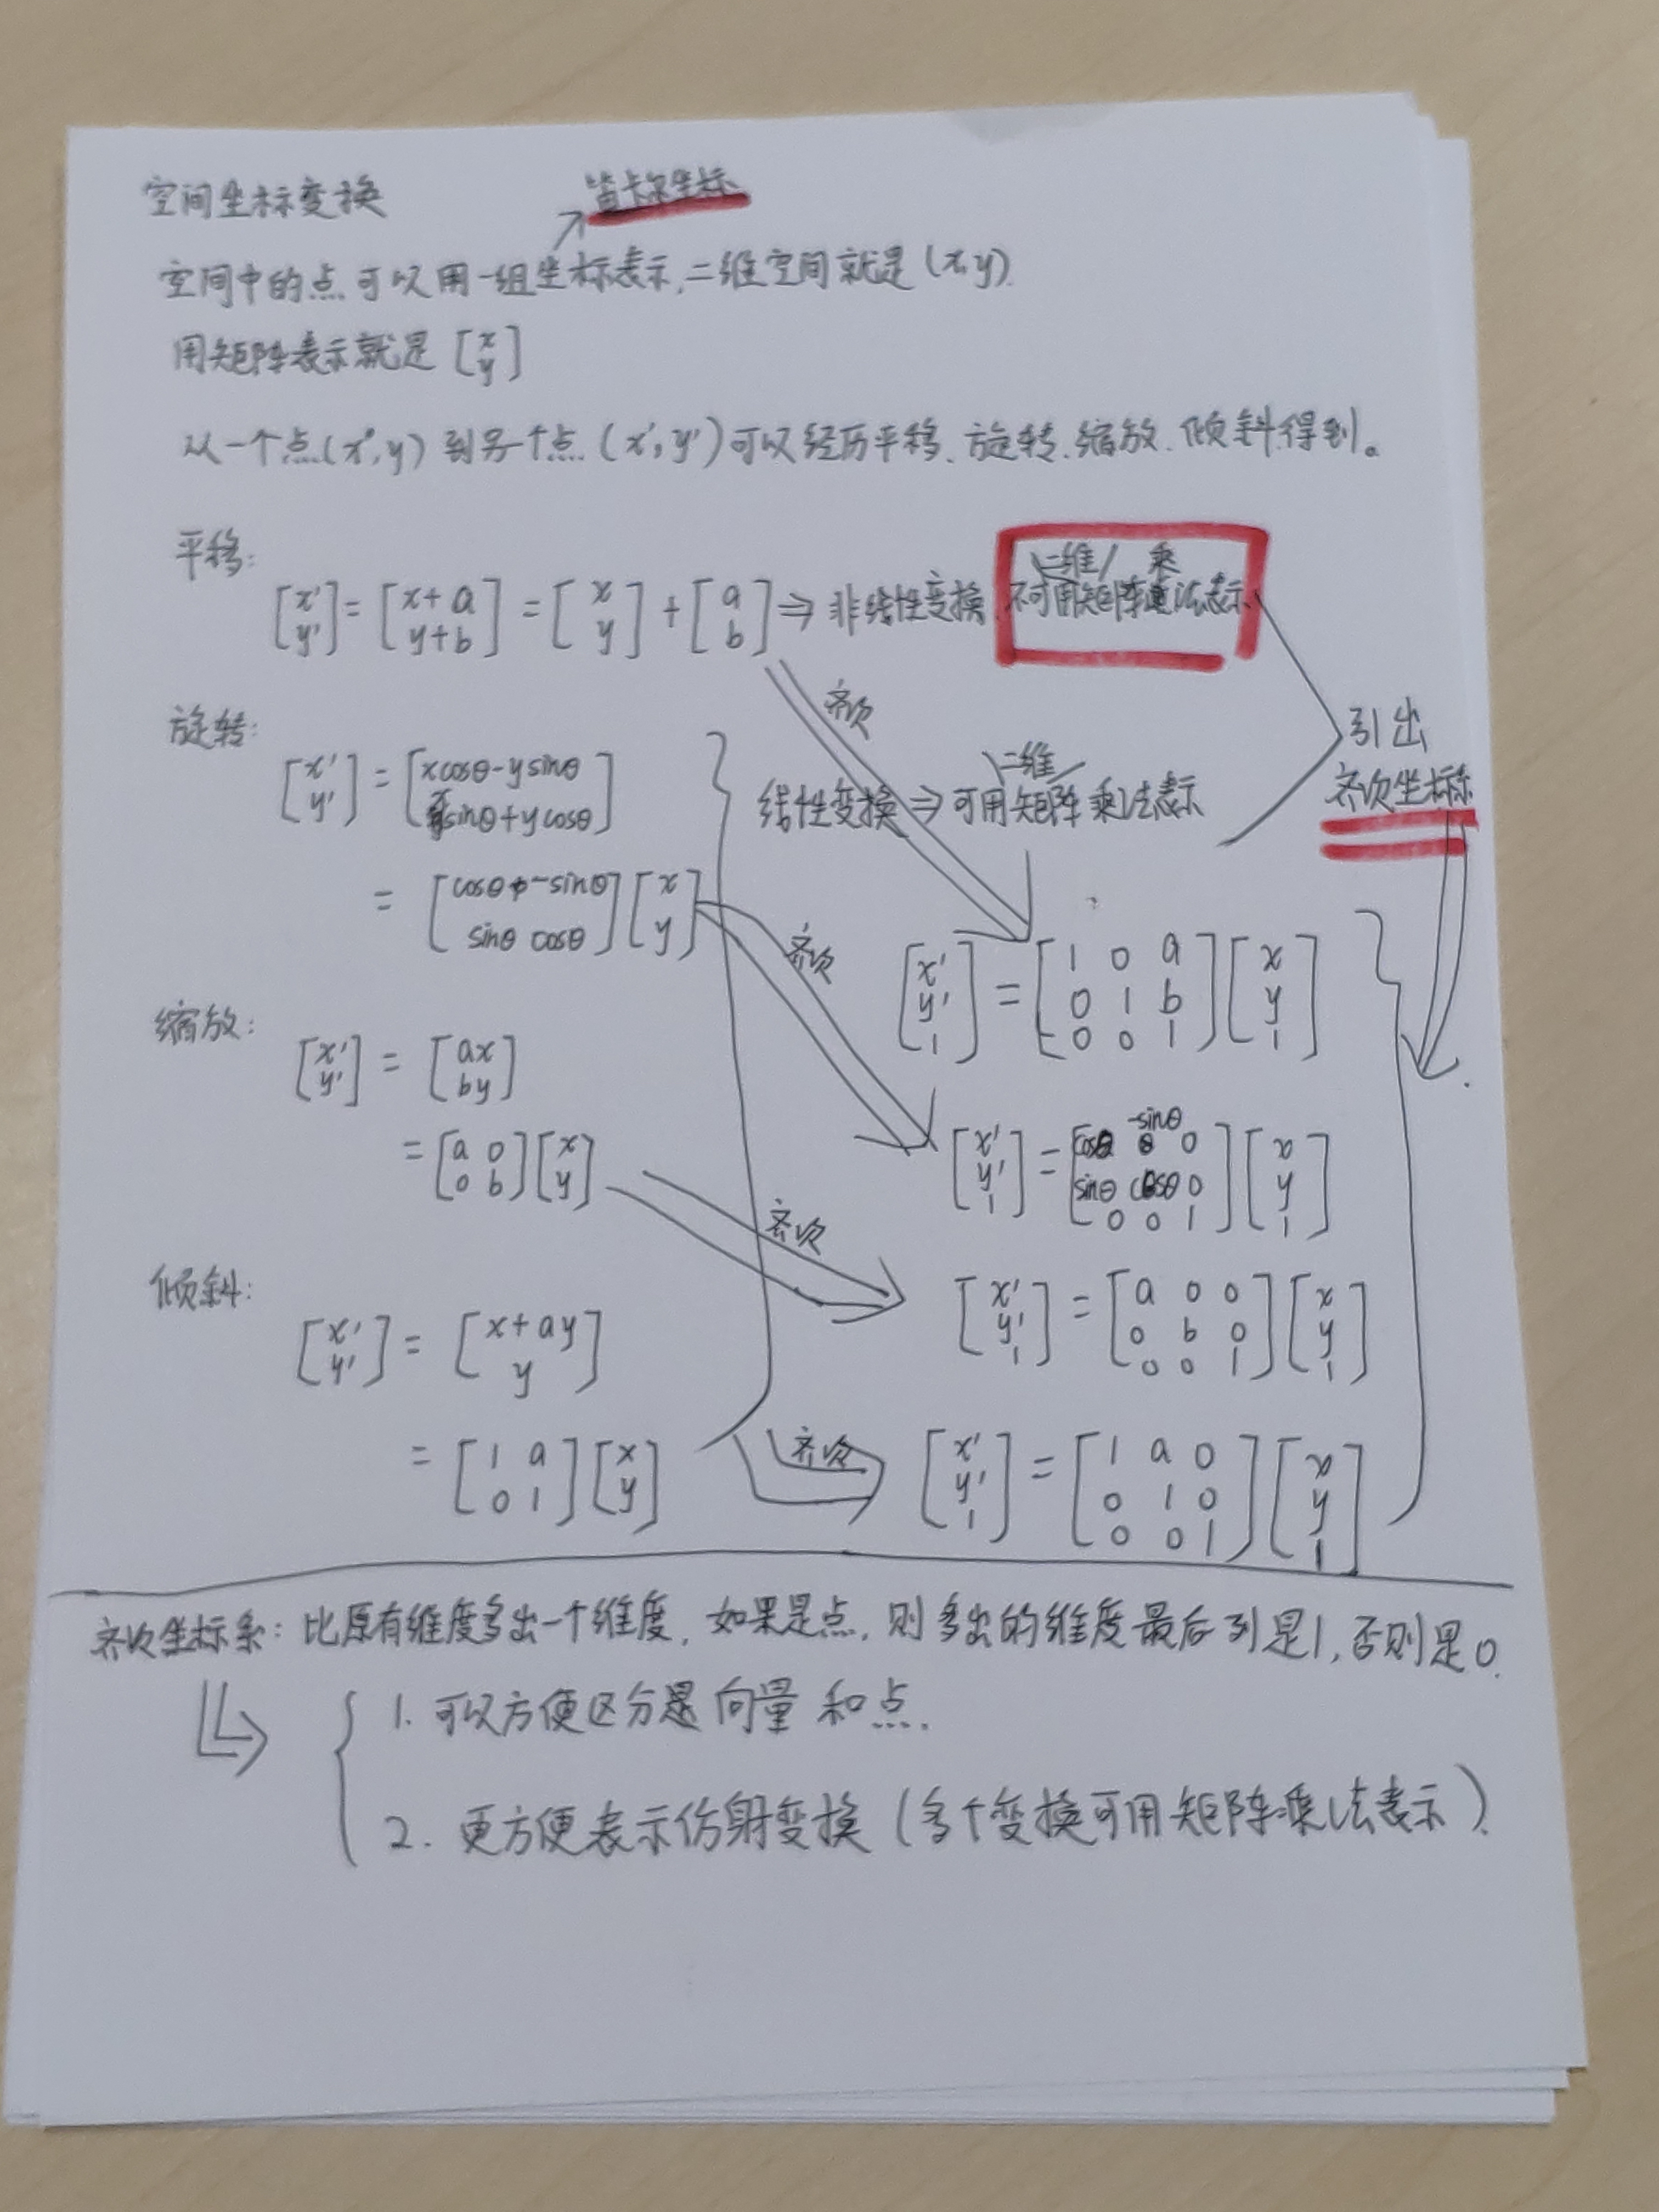 空间坐标变换
笛卡尔坐标
空间中的点可以用一组坐标表示,二维空间就是(x,y).
用矩阵表示就是 [x y]
从一个点(x,y)到另个点(x',y')可以经历平移、旋转、缩放、倾斜得到。
平移:
[x' y'] = [x+a y+b] = [x y] + [a b] ⇒ 非线性变换,不可用二维矩阵乘法表示
齐次
旋转:
[x' y'] = [xcosθ-ysinθ xsinθ+ycosθ]
= [cosθ -sinθ sinθ cosθ] [x y]
线性变换 ⇒ 可用二维矩阵乘法表示
引出
齐次坐标系
齐次
[x' y' 1] = [1 0 a 0 1 b 0 0 1] [x y 1]
缩放:
[x' y'] = [ax by]
= [a 0 0 b] [x y]
[x' y' 1] = [cosθ -sinθ 0 sinθ cosθ 0 0 0 1] [x y 1]
齐次
倾斜:
[x' y'] = [x+ay y]
= [1 a 0 1] [x y]
[x' y' 1] = [a 0 0 0 b 0 0 0 1] [x y 1]
齐次
[x' y' 1] = [1 a 0 0 1 0 0 0 1] [x y 1]
齐次坐标系: 比原有维度多出一个维度,如果是点,则多出的维度最后列是1,否则是0.
1. 可以方便区分是向量和点.
2. 更方便表示仿射变换(多个变换可用矩阵乘法表示).